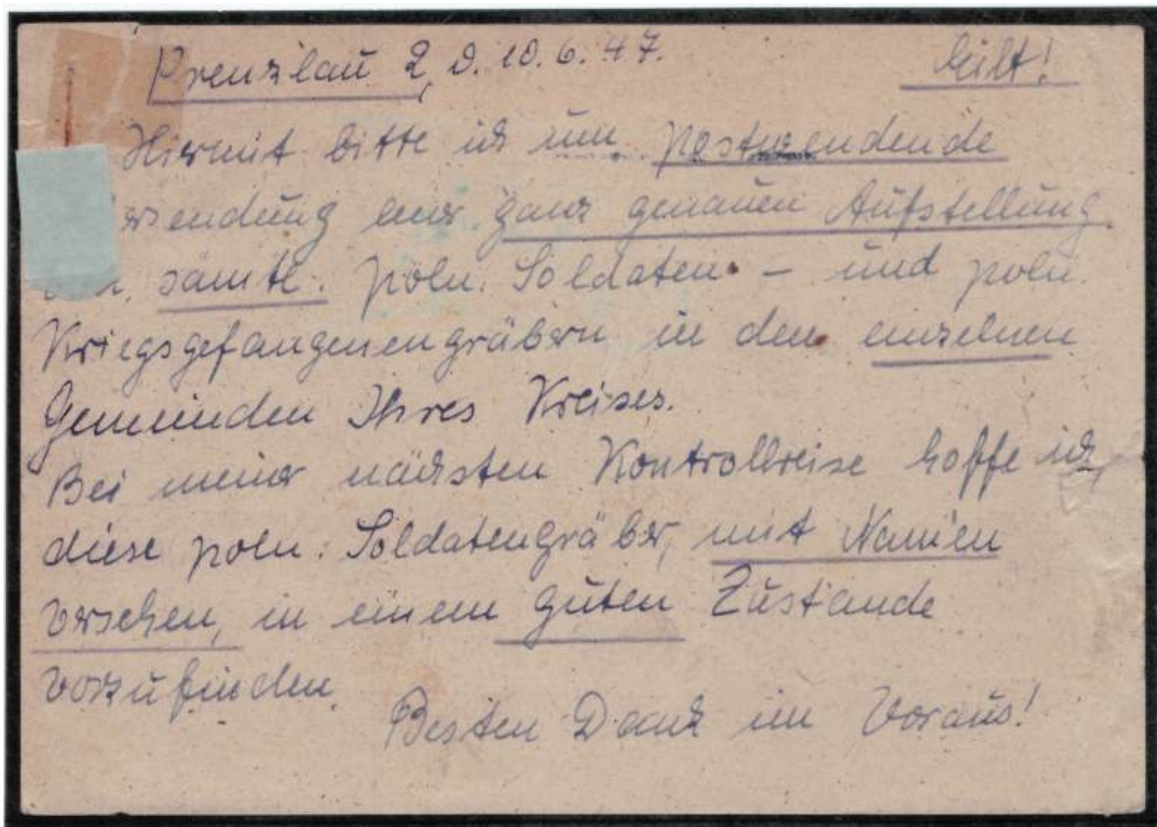 Prenzlau 2, d. 10.6.47. Eilt!
Hiermit bitte ich um postwendende
ersendung einer ganz genauen Aufstellung
sämtl. poln. Soldaten - und poln.
Kriegsgefangenengräbern in den einzelnen
Gemeinden Ihres Kreises.
Bei meiner nächsten Kontrollreise hoffe ich,
diese poln. Soldatengräber, mit Namen
versehen, in einem guten Zustande
vorzufinden.
Besten Dank im Voraus!